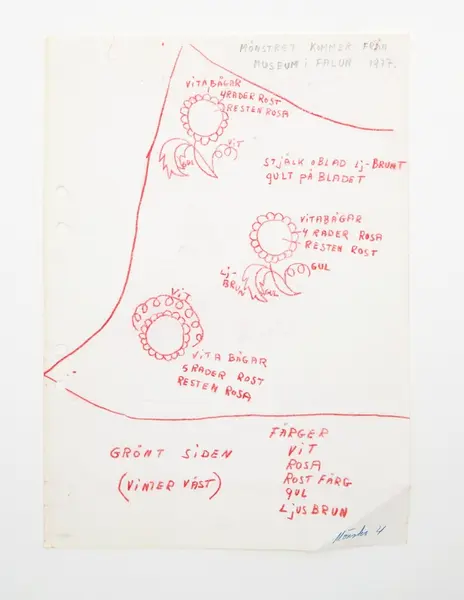 MÖNSTERT KOMMER FRÅN
MUSEUM i FALUN 1977.
VITA BÅGAR
4 RADER ROST
RESTEN ROSA
GUL
VIT
STJÄLK o BLAD Lj-BRUNT
GULT PÅ BLADET
VITA BÅGAR
4 RADER ROSA
RESTEN ROST
Lj-
BRUN
GUL
GUL
VIT
VITA BÅGAR
5 RADER ROST
RESTEN ROSA
GRÖNT SIDEN
(VINTER VÄST)
FÄRGER
VIT
ROSA
ROST FÄRG
GUL
LJUSBRUN
4